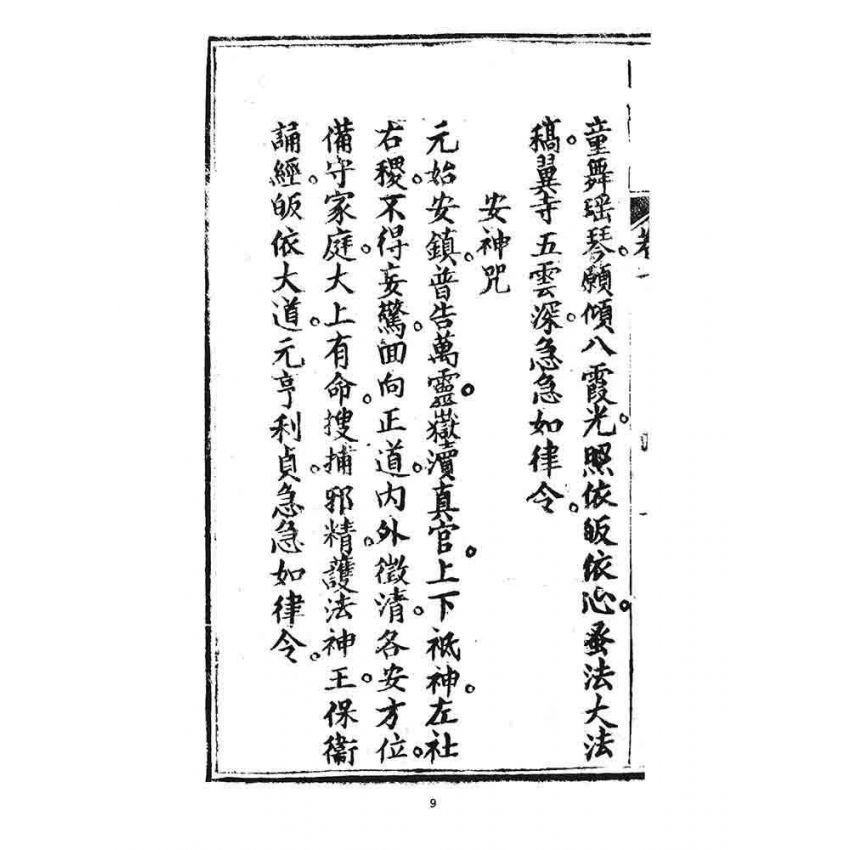 童舞瑶琴。願傾八霞光。照依皈依心。蚤法大法
稿。翼寺五雲深。急急如律令。
安神咒
元始安鎮。普告萬靈。嶽瀆真官。上下祇神。左社
右稷。不得妄驚。面向正道。內外徵清。各安方位。
備守家庭。大上有命。搜捕邪精。護法神王。保衛
誦經。皈依大道。元亨利貞。急急如律令。
9